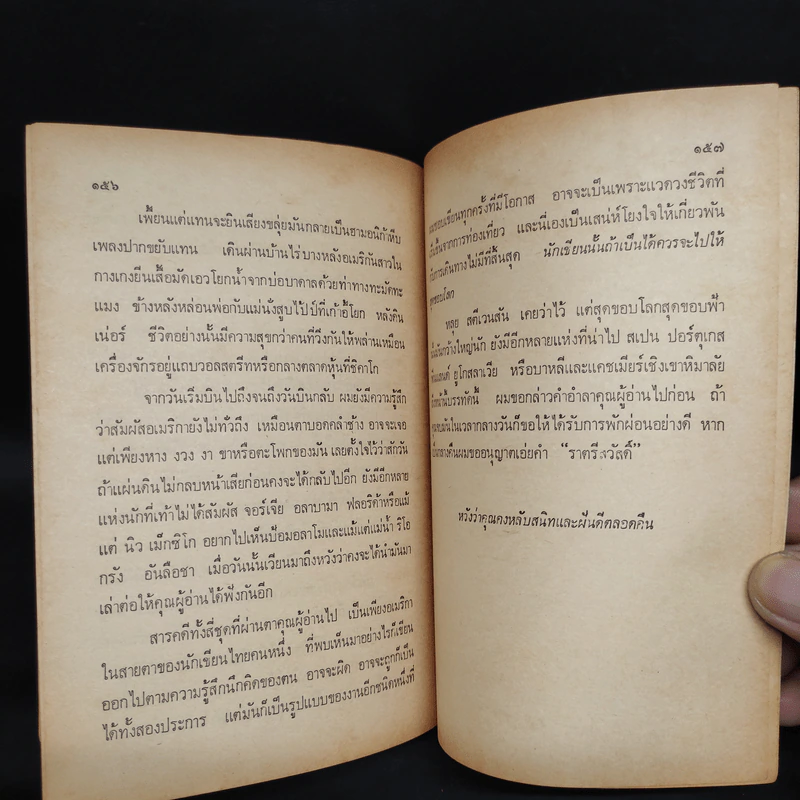 ๑๕๖
เพี้ยนแต่แทนจะยินเสียงขลุ่ยมันกลายเป็นฮามอนิก้าหีบ
เพลงปากขยับแทน เดินผ่านบ้านไร่บางหลังอเมริกันสาวใน
กางเกงยีนเสื้อมัดเอวโยกน้ำจากบ่อบาดาลด้วยท่าทางทะมัดทะ
แมง ข้างหลังหล่อนพ่อกับแม่นั่งสูบไป๊ป์ที่เก้าอี้โยก หลังดิน
เน่อร์ ชีวิตอย่างนั้นมีความสุขกว่าคนที่วิ่งกันให้พล่านเหมือน
เครื่องจักรอยู่แถบวอลสตรีทหรือกลางตลาดหุ้นที่ชิคาโก
จากวันเริ่มบินไปถึงจนถึงวันบินกลับ ผมยังมีความรู้สึก
ว่าสัมผัสอเมริกายังไม่ทั่วถึง เหมือนตาบอดคลำช้าง อาจจะเจอ
แต่เพียงหาง งวง งา ขาหรือตะโพกของมัน เลยตั้งใจไว้ว่าสักวัน
ถ้าแผ่นดินไม่กลบหน้าเสียก่อนคงจะได้กลับไปอีก ยังมีอีกหลาย
แห่งนักที่เท้าไม่ได้สัมผัส จอร์เจีย อลาบามา ฟลอริด้าหรือแม้
แต่ นิว เม็กซิโก อยากไปเห็นป้อมอลาโมและแม้แต่แม่น้ำ ริโอ
กรัง อันลือชา เมื่อวันนั้นเวียนมาถึงหวังว่าคงจะได้นำมันมา
เล่าต่อให้คุณผู้อ่านได้ฟังกันอีก
สารคดีทั้งสี่ชุดที่ผ่านตาคุณผู้อ่านไป เป็นเพียงอเมริกา
ในสายตาของนักเขียนไทยคนหนึ่ง ที่พบเห็นมาอย่างไรก็เขียน
ออกไปตามความรู้สึกนึกคิดของตน อาจจะผิด อาจจะถูกก็เป็น
ได้ทั้งสองประการ แต่มันก็เป็นรูปแบบของงานอีกชนิดหนึ่งที่
๑๕๗
ชอบเขียนทุกครั้งที่มีโอกาส อาจจะเป็นเพราะแวดวงชีวิตที่
จากการท่องเที่ยว และนี่เองเป็นเสน่ห์โยงใจให้เกี่ยวพัน
การเดินทางไม่มีที่สิ้นสุด นักเขียนนั้นถ้าเป็นได้ควรจะไปให้
สุดขอบโลก
หลุย สตีเวนสัน เคยว่าไว้ แต่สุดขอบโลกสุดขอบฟ้า
กว้างใหญ่นัก ยังมีอีกหลายแห่งที่น่าไป สเปน ปอร์ตุเกส
ยูโกสลาเวีย หรือบาหลีและแคชเมียร์เชิงเขาหิมาลัย
บรรทัดนี้ ผมขอกล่าวคำอำลาคุณผู้อ่านไปก่อน ถ้า
ในเวลากลางวันก็ขอให้ได้รับการพักผ่อนอย่างดี หาก
กลางคืนผมขออนุญาตเอ่ยคำ "ราตรีสวัสดิ์"
หวังว่าคุณคงหลับสนิทและฝันดีตลอดคืน